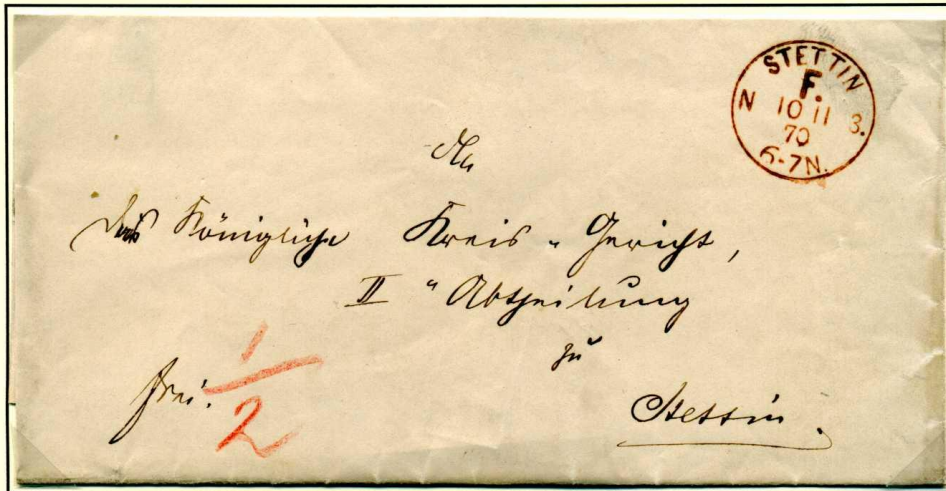 STETTIN
F.
N 10 11 3.
70
6-7N.
An
das Königliche Kreis-Gericht,
II" Abtheilung
zu
Stettin.
frei. 1/2